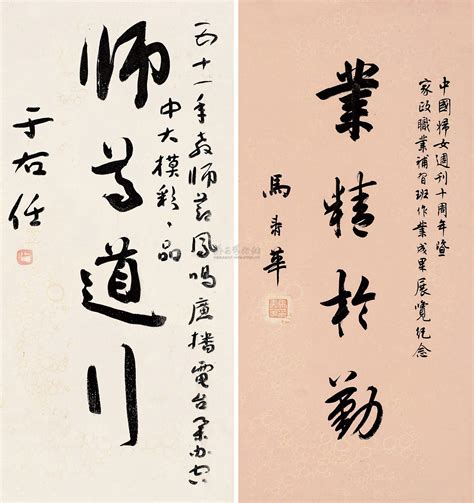 中國婦女週刊十周年暨
家政職業補習班作業成果展覽紀念
業精於勤
馬壽華
五十一年教師節鳳鳴廣播電台舉办空
中大摸彩品
師尊道行
于右任